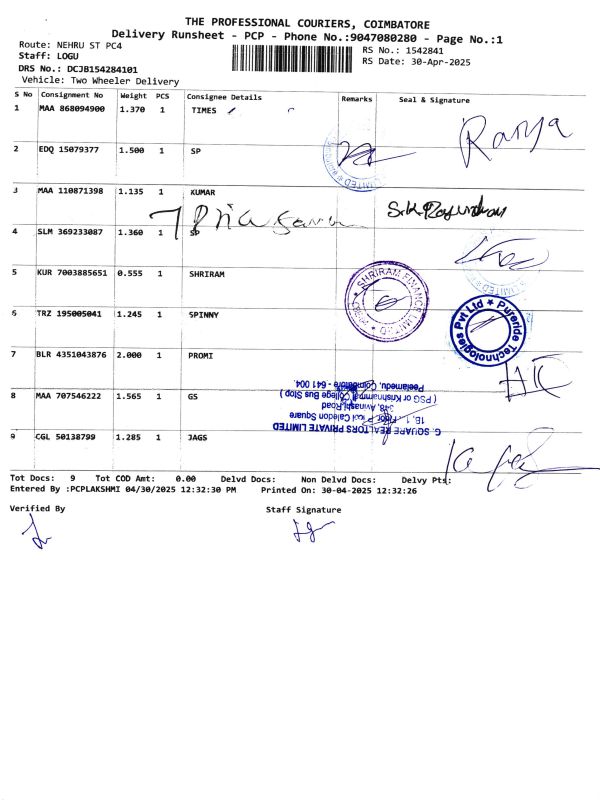 THE PROFESSIONAL COURIERS, COIMBATORE
Delivery Runsheet - PCP - Phone No.:9047080280 - Page No.:1
Route: NEHRU ST PC4
Staff: LOGU
DRS No.: DCJB154284101
Vehicle: Two Wheeler Delivery
RS No.: 1542841
RS Date: 30-Apr-2025
S No Consignment No Weight PCS Consignee Details Remarks Seal & Signature
1 MAA 868094900 1.370 1 TIMES
Ranya
2 EDQ 15079377 1.500 1 SP
3 MAA 110871398 1.135 1 KUMAR
4 SLM 369233087 1.360 1 SP
5 KUR 7003885651 0.555 1 SHRIRAM
SHRIRAM FINANCE LIMITED
6 TRZ 195005041 1.245 1 SPINNY
Pureride Technologies Pvt Ltd
7 BLR 4351043876 2.000 1 PROMI
8 MAA 707546222 1.565 1 GS
G. SQUARE REALTORS PRIVATE LIMITED
1B, 1 Floor, Caledon Square
348, Avinashi Road
( PSG or Krishnammal College Bus Stop )
Peelamedu, Coimbatore - 641 004.
9 CGL 50138799 1.285 1 JAGS
Tot Docs: 9 Tot COD Amt: 0.00 Delvd Docs: Non Delvd Docs: Delvy Pts:
Entered By :PCPLAKSHMI 04/30/2025 12:32:30 PM Printed On: 30-04-2025 12:32:26
Verified By Staff Signature